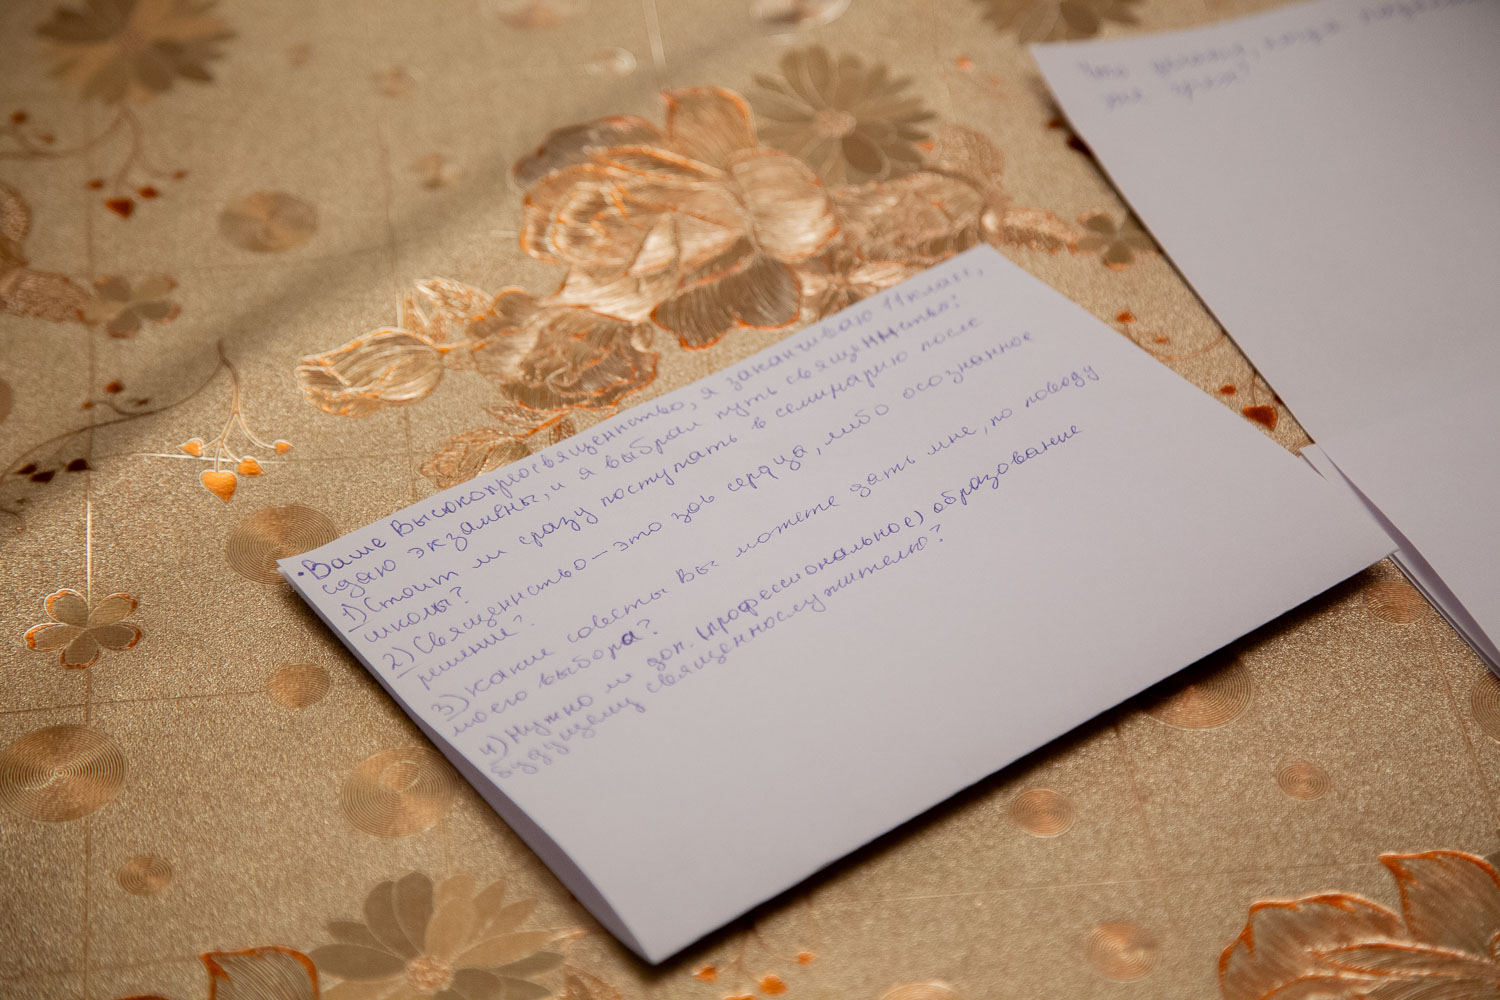 • Ваше Высокопреосвященство, я заканчиваю 11 класс,
сдаю экзамены, и я выбрал путь священства:
1) Стоит ли сразу поступать в семинарию после
школы?
2) Священство – это зов сердца, либо осознанное
решение?
3) Какие советы Вы можете дать мне, по поводу
моего выбора?
4) Нужно ли доп. (профессиональное) образование
будущему священнослужителю?
Что делать, когда